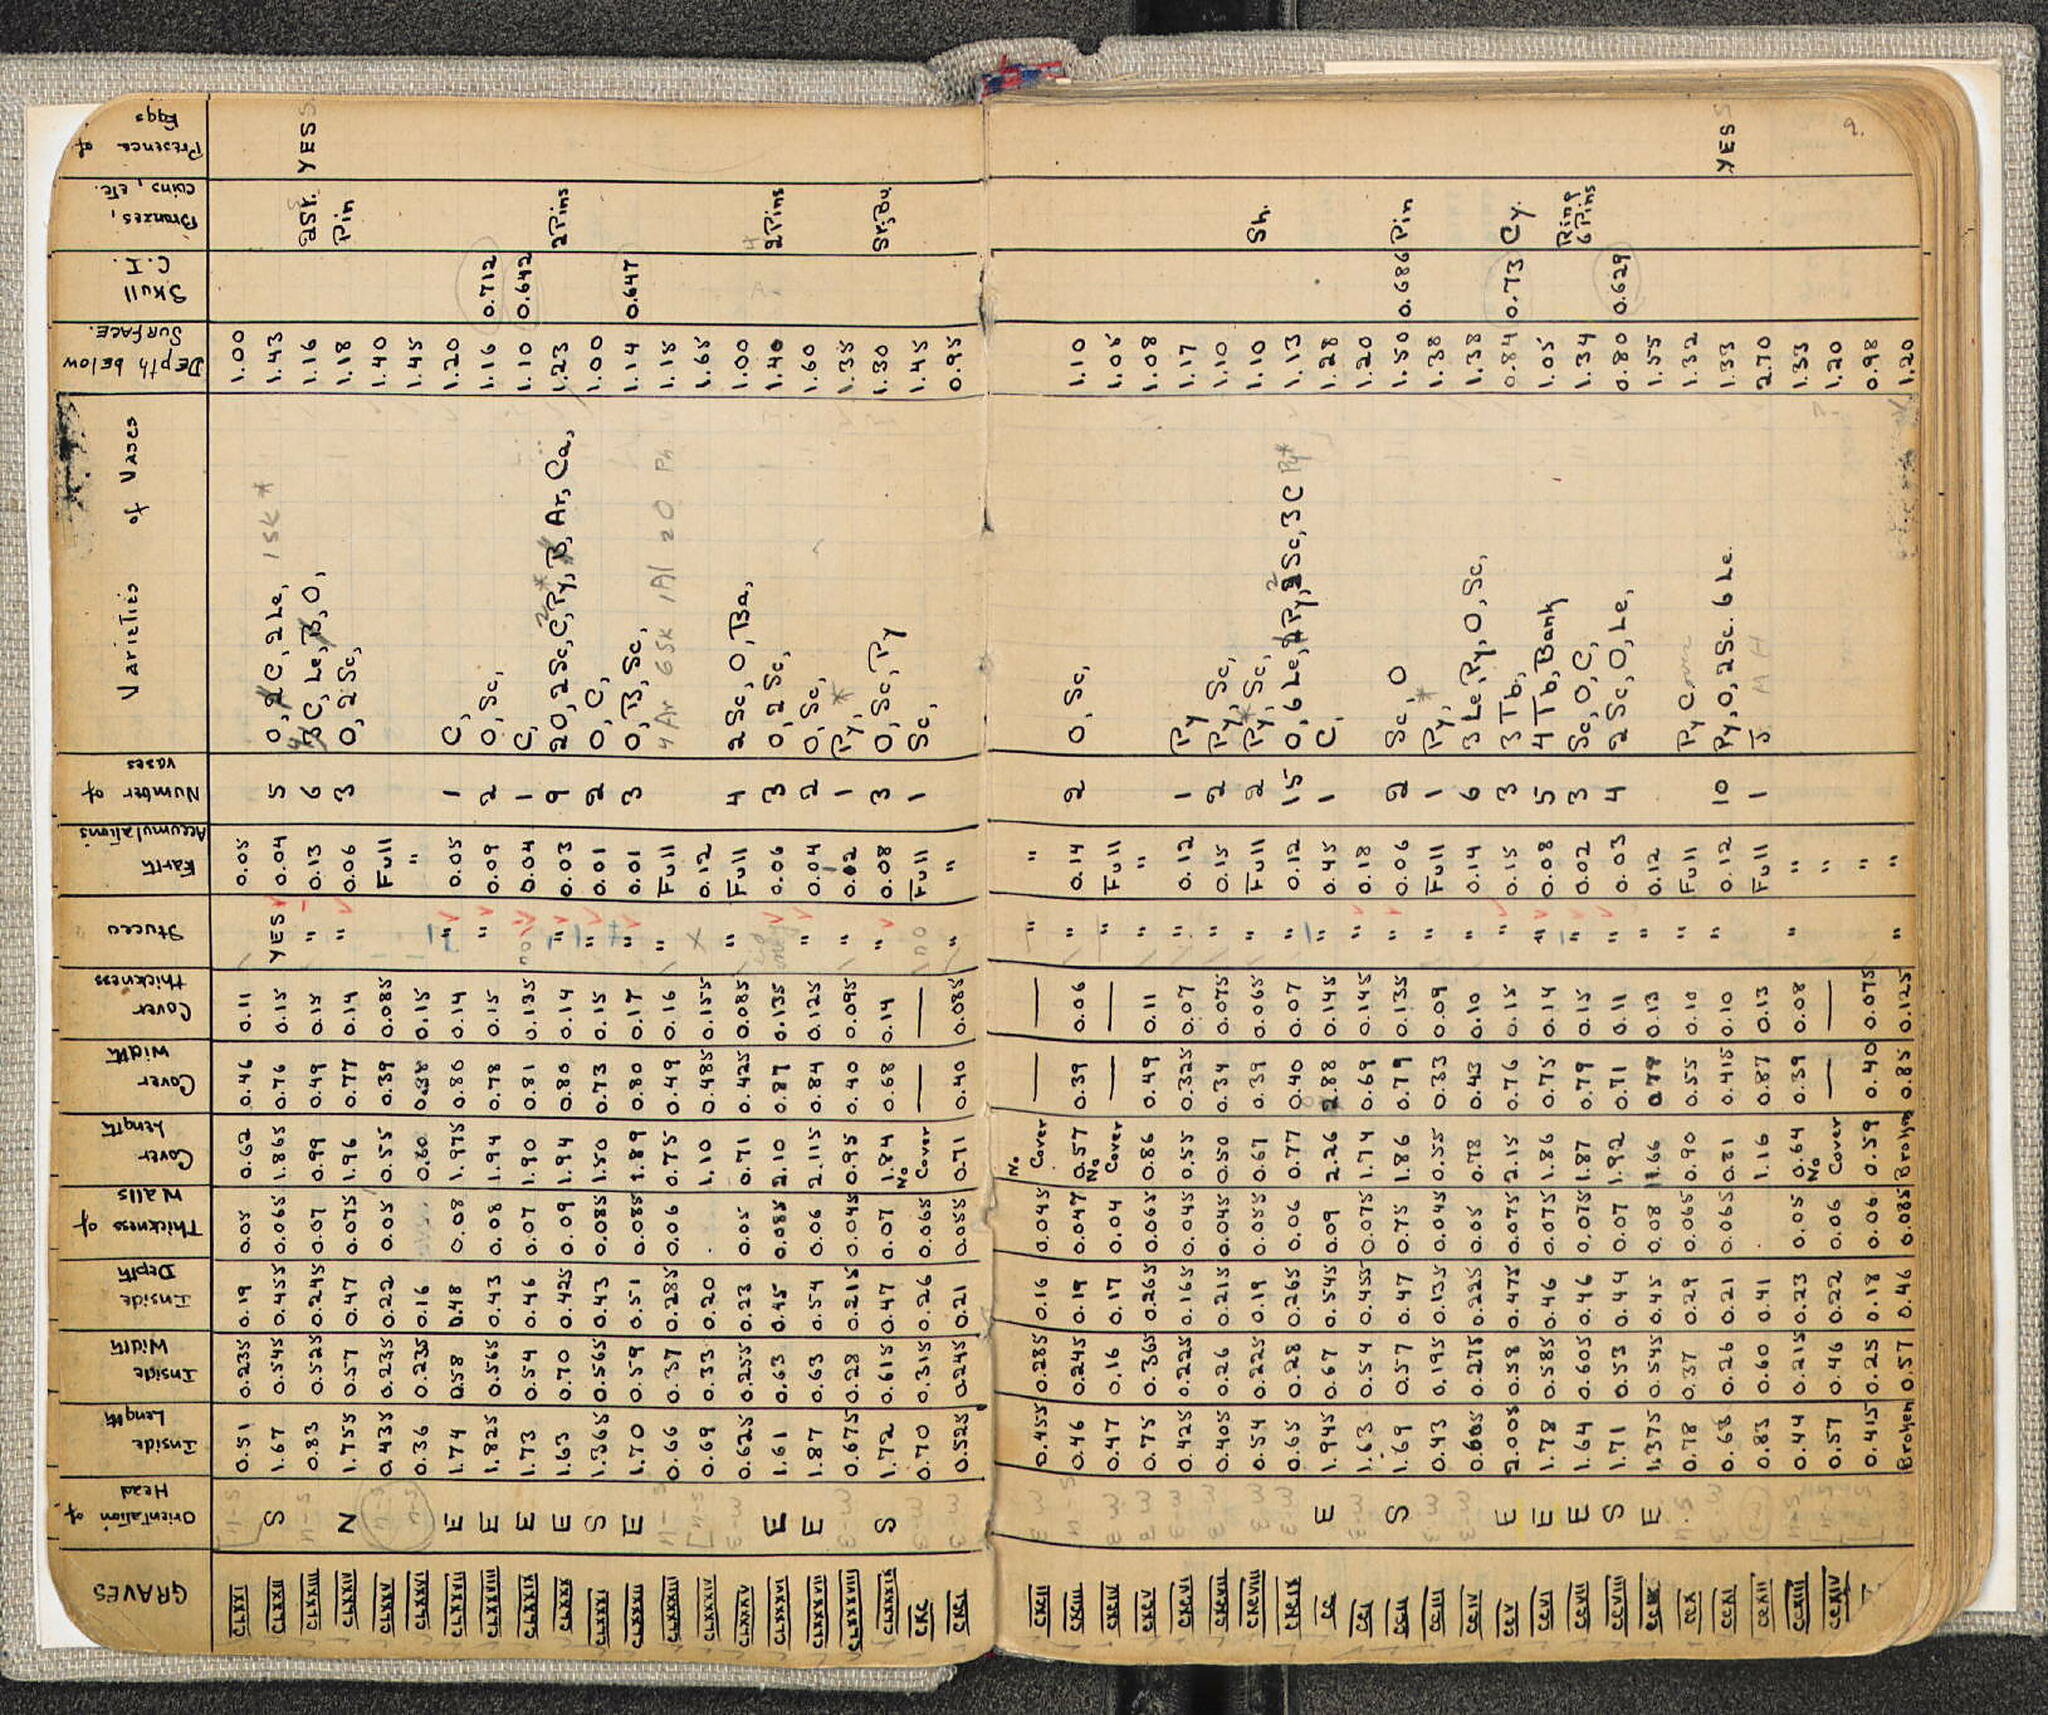 GRAVES | Orientation of Head | Inside Length | Inside Width | Inside Depth | Thickness of Walls | Cover Length | Cover Width | Cover thickness | Stucco | Earth Accumulations | Number of vases | Varieties of Vases | Depth below Surface. | Skull C.I. | Bronzes, coins, etc. | Presence of Eggs
CLXXI 0.51 0.235 0.19 0.05 0.62 0.46 0.11 0.05 1.00
CLXXII S 1.67 0.545 0.455 0.065 1.865 0.76 0.15 YES 0.04 5 O, 2C, 2Le, 1SK* 1.43
CLXXIII N-S 0.83 0.525 0.245 0.07 0.99 0.49 0.15 " 0.13 6 3C, Le, B, O, 1.16 2St. YES
CLXXIV N 1.755 0.57 0.47 0.075 1.96 0.77 0.14 " 0.06 3 O, 2Sc, 1.18 Pin
CLXXV N-S 0.435 0.235 0.22 0.05 0.55 0.39 0.085 Full 1.40
CLXXVI N-S 0.36 0.235 0.16 0.60 0.38 0.15 " 1.45
CLXXVII E 1.74 0.58 0.48 0.08 1.975 0.80 0.14 " 0.05 1 C, 1.20
CLXXVIII E 1.825 0.565 0.43 0.08 1.94 0.78 0.15 " 0.09 2 O, Sc, 1.16 0.712
CLXXIX E 1.73 0.54 0.46 0.07 1.90 0.81 0.135 no 0.04 1 C, 1.10 0.642
CLXXX E 1.63 0.70 0.425 0.09 1.94 0.80 0.14 " 0.03 9 2O, 2Sc, C, Py, B, Ar, Ca, 1.23 2Pins
CLXXXI S 1.365 0.565 0.43 0.085 1.50 0.73 0.15 " 0.01 2 O, C, 1.00
CLXXXII E 1.70 0.59 0.51 0.085 1.89 0.80 0.17 " 0.01 3 O, B, Sc, 1.14 0.647
CLXXXIII N-S 0.66 0.37 0.285 0.06 0.75 0.49 0.16 " Full 4Ar 6SK 1Al 2O Ph 1.15
CLXXXIV N-S 0.69 0.33 0.20 1.10 0.485 0.155 X 0.12 1.65
CLXXXV E-W 0.625 0.255 0.23 0.05 0.71 0.425 0.085 " Full 4 2Sc, O, Ba, 1.00
CLXXXVI E 1.61 0.63 0.45 0.085 2.10 0.87 0.135 0.06 3 O, 2Sc, 1.40 2Pins
CLXXXVII E 1.87 0.63 0.54 0.06 2.115 0.84 0.125 " 0.04 2 O, Sc, 1.60
CLXXXVIII E-W 0.675 0.28 0.215 0.045 0.95 0.40 0.095 " 0.02 1 Py, * 1.35
CLXXXIX S 1.72 0.615 0.47 0.07 1.84 0.68 0.14 " 0.08 3 O, Sc, Py 1.30 St, Bu.
CXC E-W 0.70 0.315 0.26 0.065 No Cover — — no Full 1 Sc, 1.45
CXCI E-W 0.525 0.245 0.21 0.055 0.71 0.40 0.085 " " 0.95
9.
CXCII E-W 0.455 0.285 0.16 0.045 No Cover — — " "
CXCIII N-S 0.46 0.245 0.19 0.047 0.57 0.39 0.06 " 0.14 2 O, Sc, 1.10
CXCIV E-W 0.47 0.16 0.17 0.04 No Cover — — " Full 1.05
CXCV E-W 0.75 0.365 0.265 0.065 0.86 0.49 0.11 " " 1.08
CXCVI E-W 0.425 0.225 0.165 0.045 0.55 0.325 0.07 " 0.12 1 Py 1.17
CXCVII E-W 0.405 0.26 0.215 0.045 0.50 0.34 0.075 " 0.15 2 Py, Sc, 1.10
CXCVIII E-W 0.54 0.225 0.19 0.055 0.67 0.39 0.065 " Full 2 Py,* Sc, 1.10 Sh.
CXCIX E-W 0.65 0.28 0.265 0.06 0.77 0.40 0.07 " 0.12 15 O, 6Le, 2Py, 2Sc, 3C Py* 1.13
CC E 1.945 0.67 0.545 0.09 2.26 2.88 0.145 " 0.45 1 C, 1.28
CCI E-W 1.63 0.54 0.455 0.075 1.74 0.69 0.145 " 0.18 1.20
CCII S 1.69 0.57 0.47 0.75 1.86 0.79 0.135 " 0.06 2 Sc, O 1.50 0.686 Pin
CCIII E-W 0.43 0.195 0.135 0.045 0.55 0.33 0.09 " Full 1 Py, * 1.38
CCIV E-W 0.605 0.275 0.225 0.05 0.78 0.43 0.10 " 0.14 6 3Le, Py, O, Sc, 1.38
CCV E 2.005 0.58 0.475 0.075 2.15 0.76 0.15 " 0.15 3 3Tb, 0.84 0.73 Cy.
CCVI E 1.78 0.585 0.46 0.075 1.86 0.75 0.14 " 0.08 5 4Tb, Bank 1.05
CCVII E 1.64 0.605 0.46 0.075 1.87 0.79 0.15 " 0.02 3 Sc, O, C, 1.34 Ring 6Pins
CCVIII S 1.71 0.53 0.44 0.07 1.92 0.71 0.11 " 0.03 4 2Sc, O, Le, 0.80 0.629
CCIX E 1.375 0.545 0.45 0.08 1.66 0.79 0.13 " 0.12 1.55
CCX N-S 0.78 0.37 0.29 0.065 0.90 0.55 0.10 " Full Py 1.32
CCXI E-W 0.68 0.26 0.21 0.065 0.81 0.415 0.10 " 0.12 10 Py, O, 2Sc. 6Le. 1.33 YES
CCXII E-W 0.83 0.60 0.41 1.16 0.87 0.13 Full 1 J 2.70
CCXIII N-S 0.44 0.215 0.23 0.05 0.64 0.39 0.08 " " 1.33
CCXIV N-S 0.57 0.46 0.22 0.06 No Cover — — " 1.20
0.415 0.25 0.18 0.06 0.59 0.40 0.075 " 0.98
Broken 0.57 0.46 0.085 Broken 0.85 0.125 " " 1.20